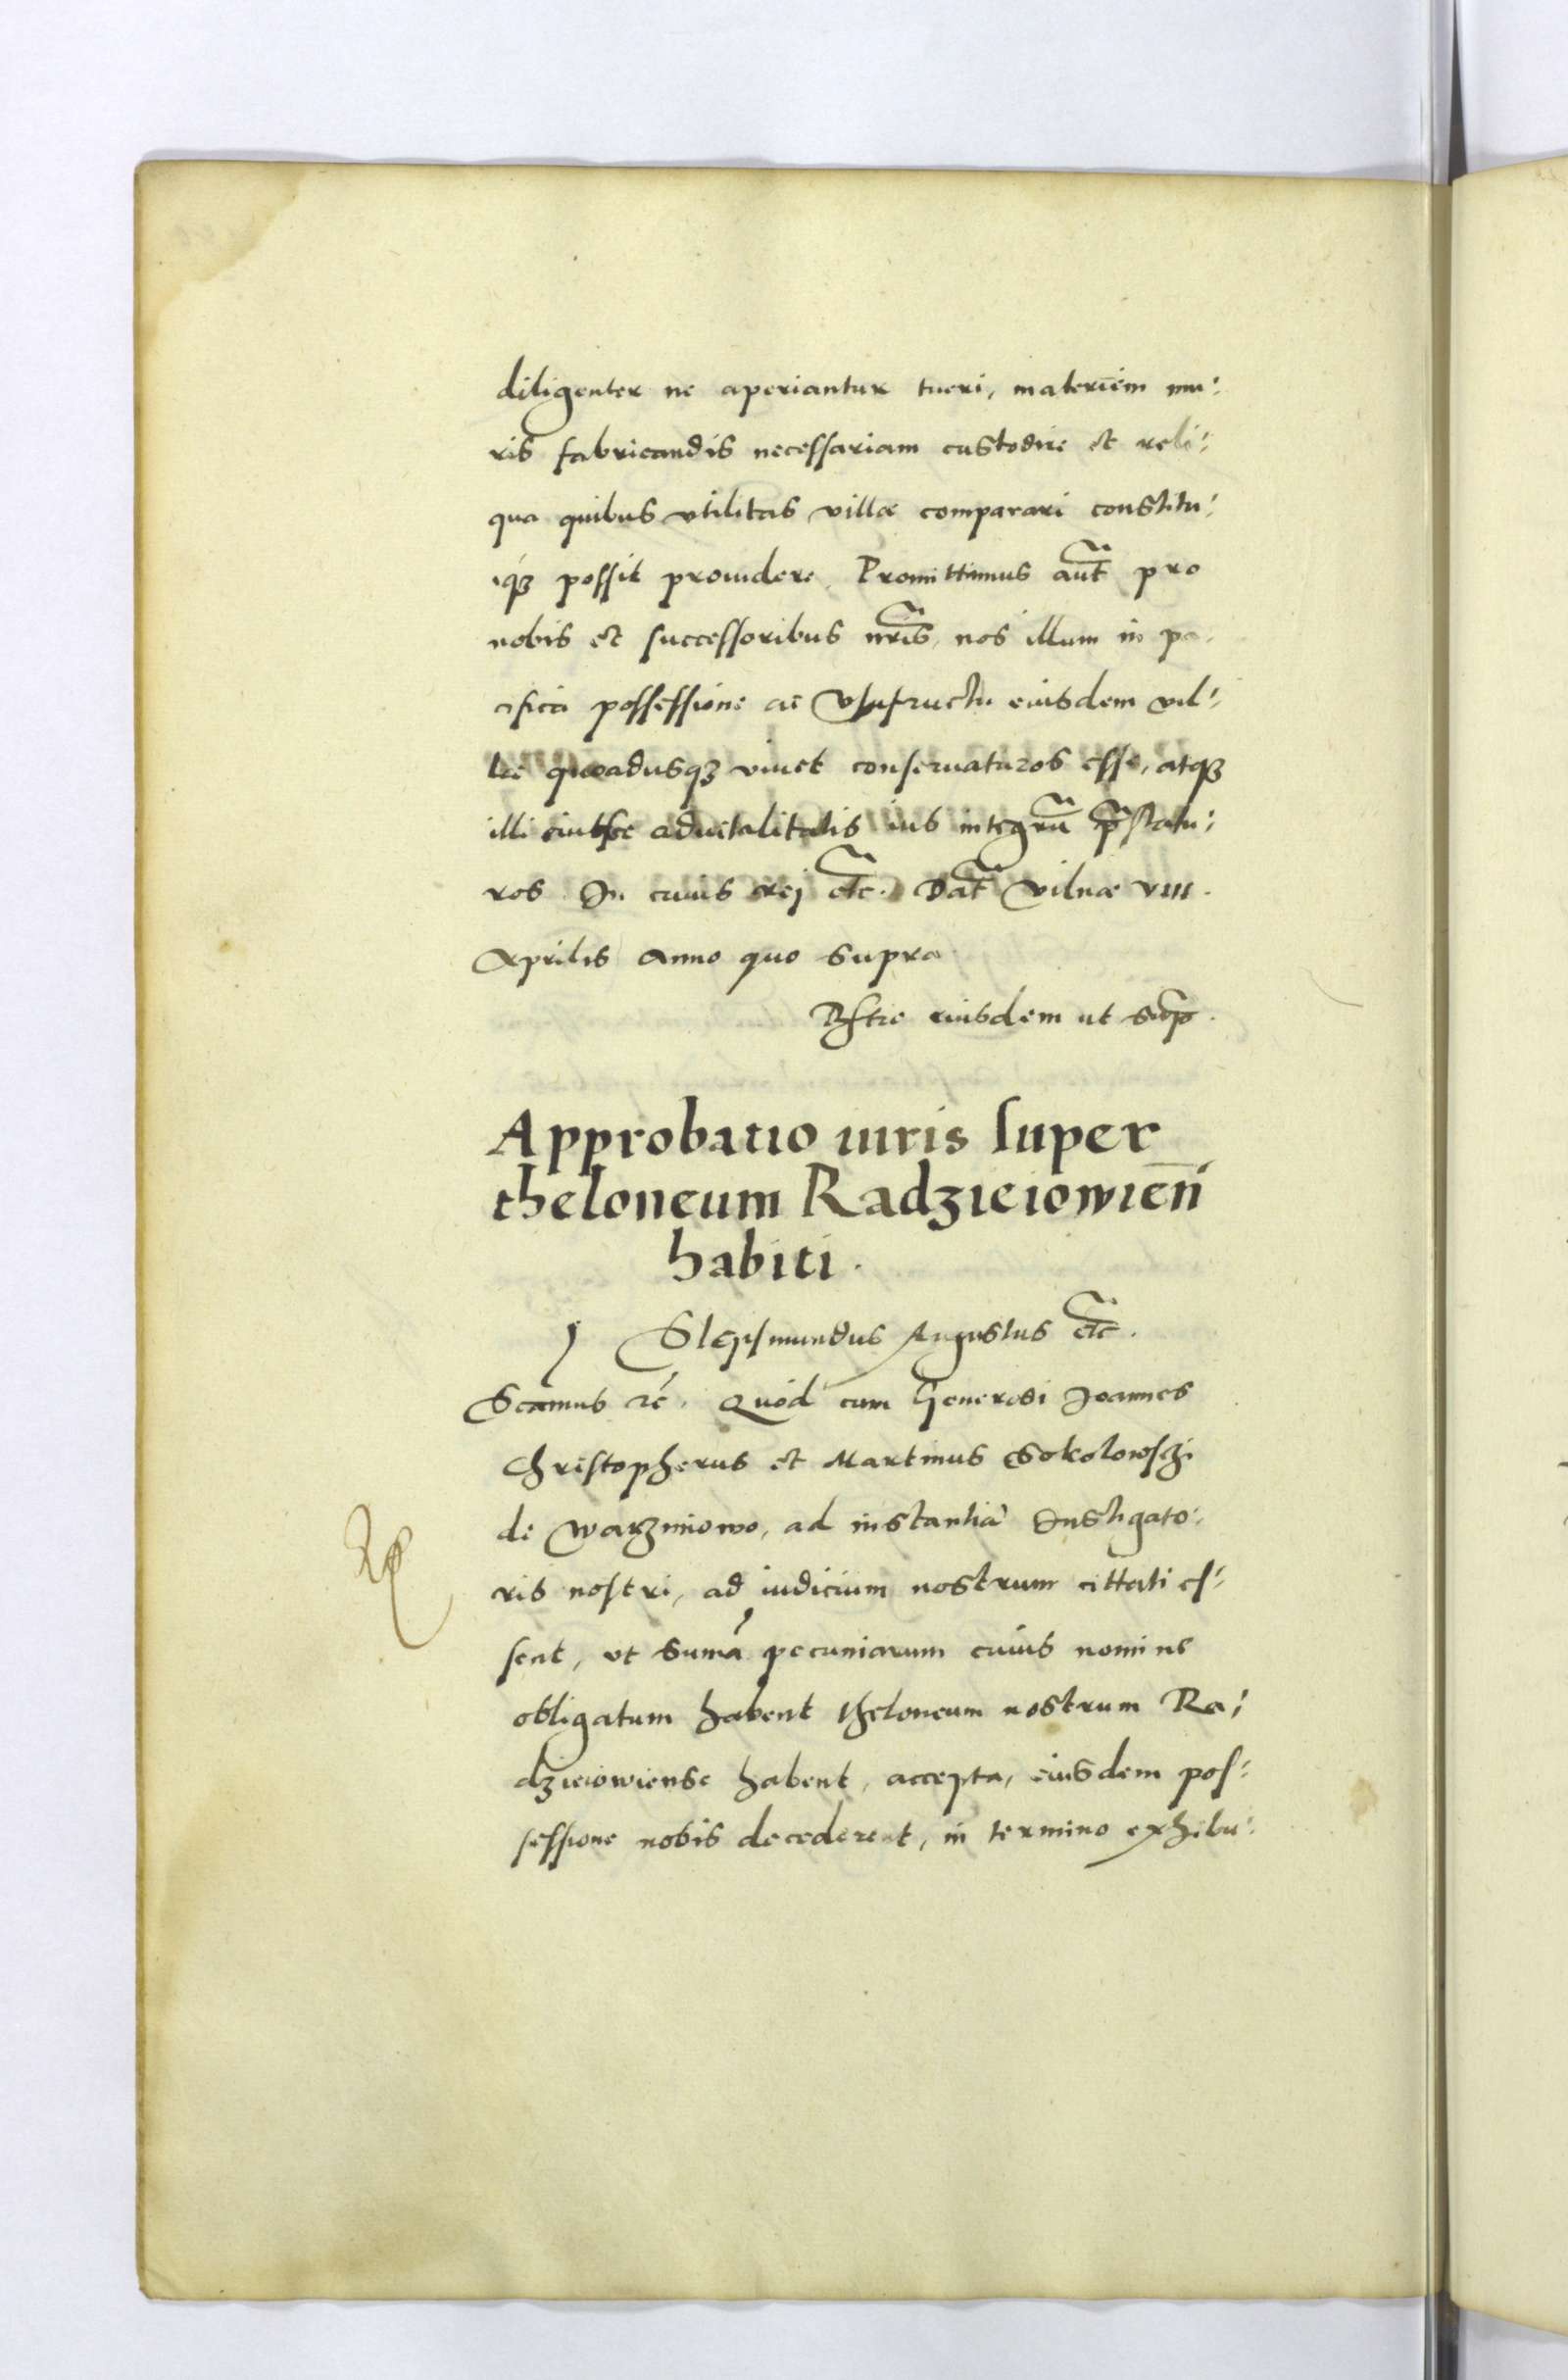 diligenter ne aperiantur tueri, materiem mu:
ris fabricandis necessariam custodire et reli:
qua quibus vtilitas villæ comparari constitu:
iq́ꝫ possit prouidere. Promittimus aut̃ pro
nobis et successoribus nr̃is, nos illum in pa,
cifica possessione ac Vsufructu eiusdem vil:
læ quoadusqꝫ viuet conseruaturos esse, atqꝫ
illi aduitalitatis ius integrũ p̃statu:
ros In cuius rej etc̃. Dat̃ Vilnæ VIII.
Aprilis Anno quo supra
eiusdem ut sup̃.
Approbatio iuris super
theloneum Radzieiowień
habiti.
Sigismundus Augustus etc̃.
Quod cum Generosi Joannes
Christopherus et Martinus Sokolowszki
de Warzmiowo, ad instantiã Instigato:
ris nostri, ad iudicium nostrum cittati es:
sent, vt sumã pecuniarum cuius nomine
obligatum habent theloneum nostrum Ra:
dzieiowiense habent, accepta, eiusdem pos:
sessione nobis decederent, in termino exhibu: